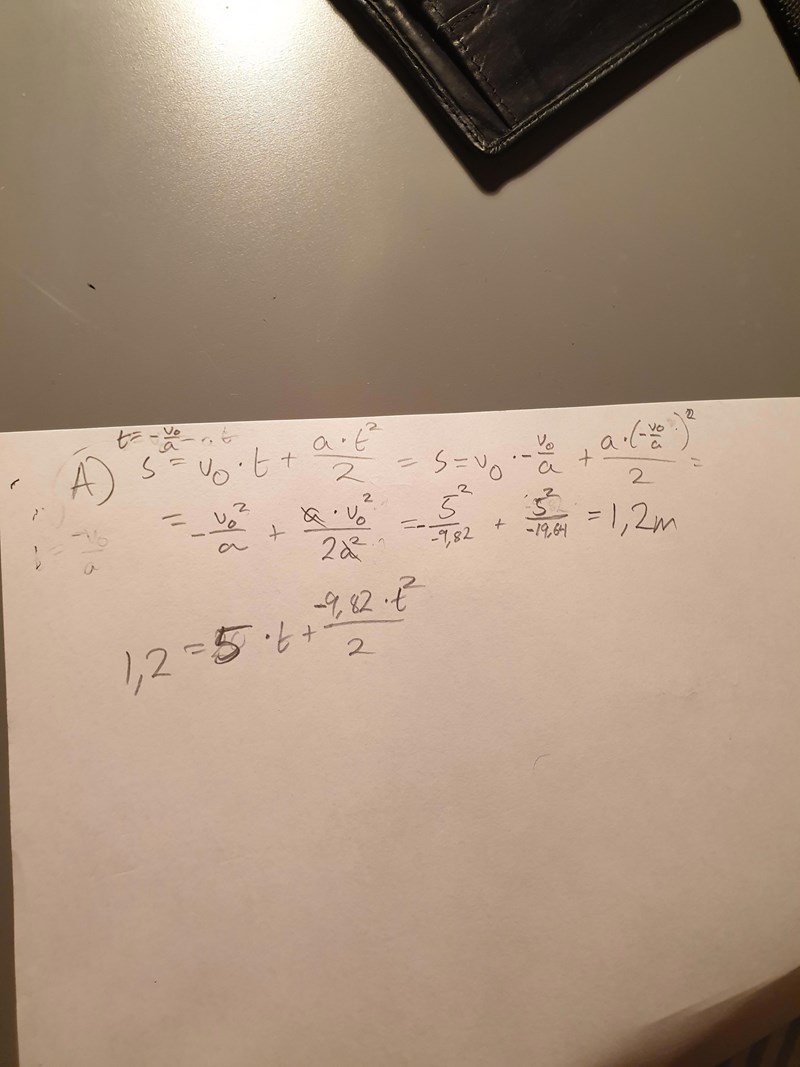 t = -v₀/a
A) s = v₀ · t + a · t²/2 = s = v₀ · -v₀/a + a · (-v₀/a)²/2 =
= -v₀²/a + a · v₀²/2a² = -5²/-9,82 + 5²/-19,64 = 1,2m
1,2 = 5 · t + -9,82 · t²/2